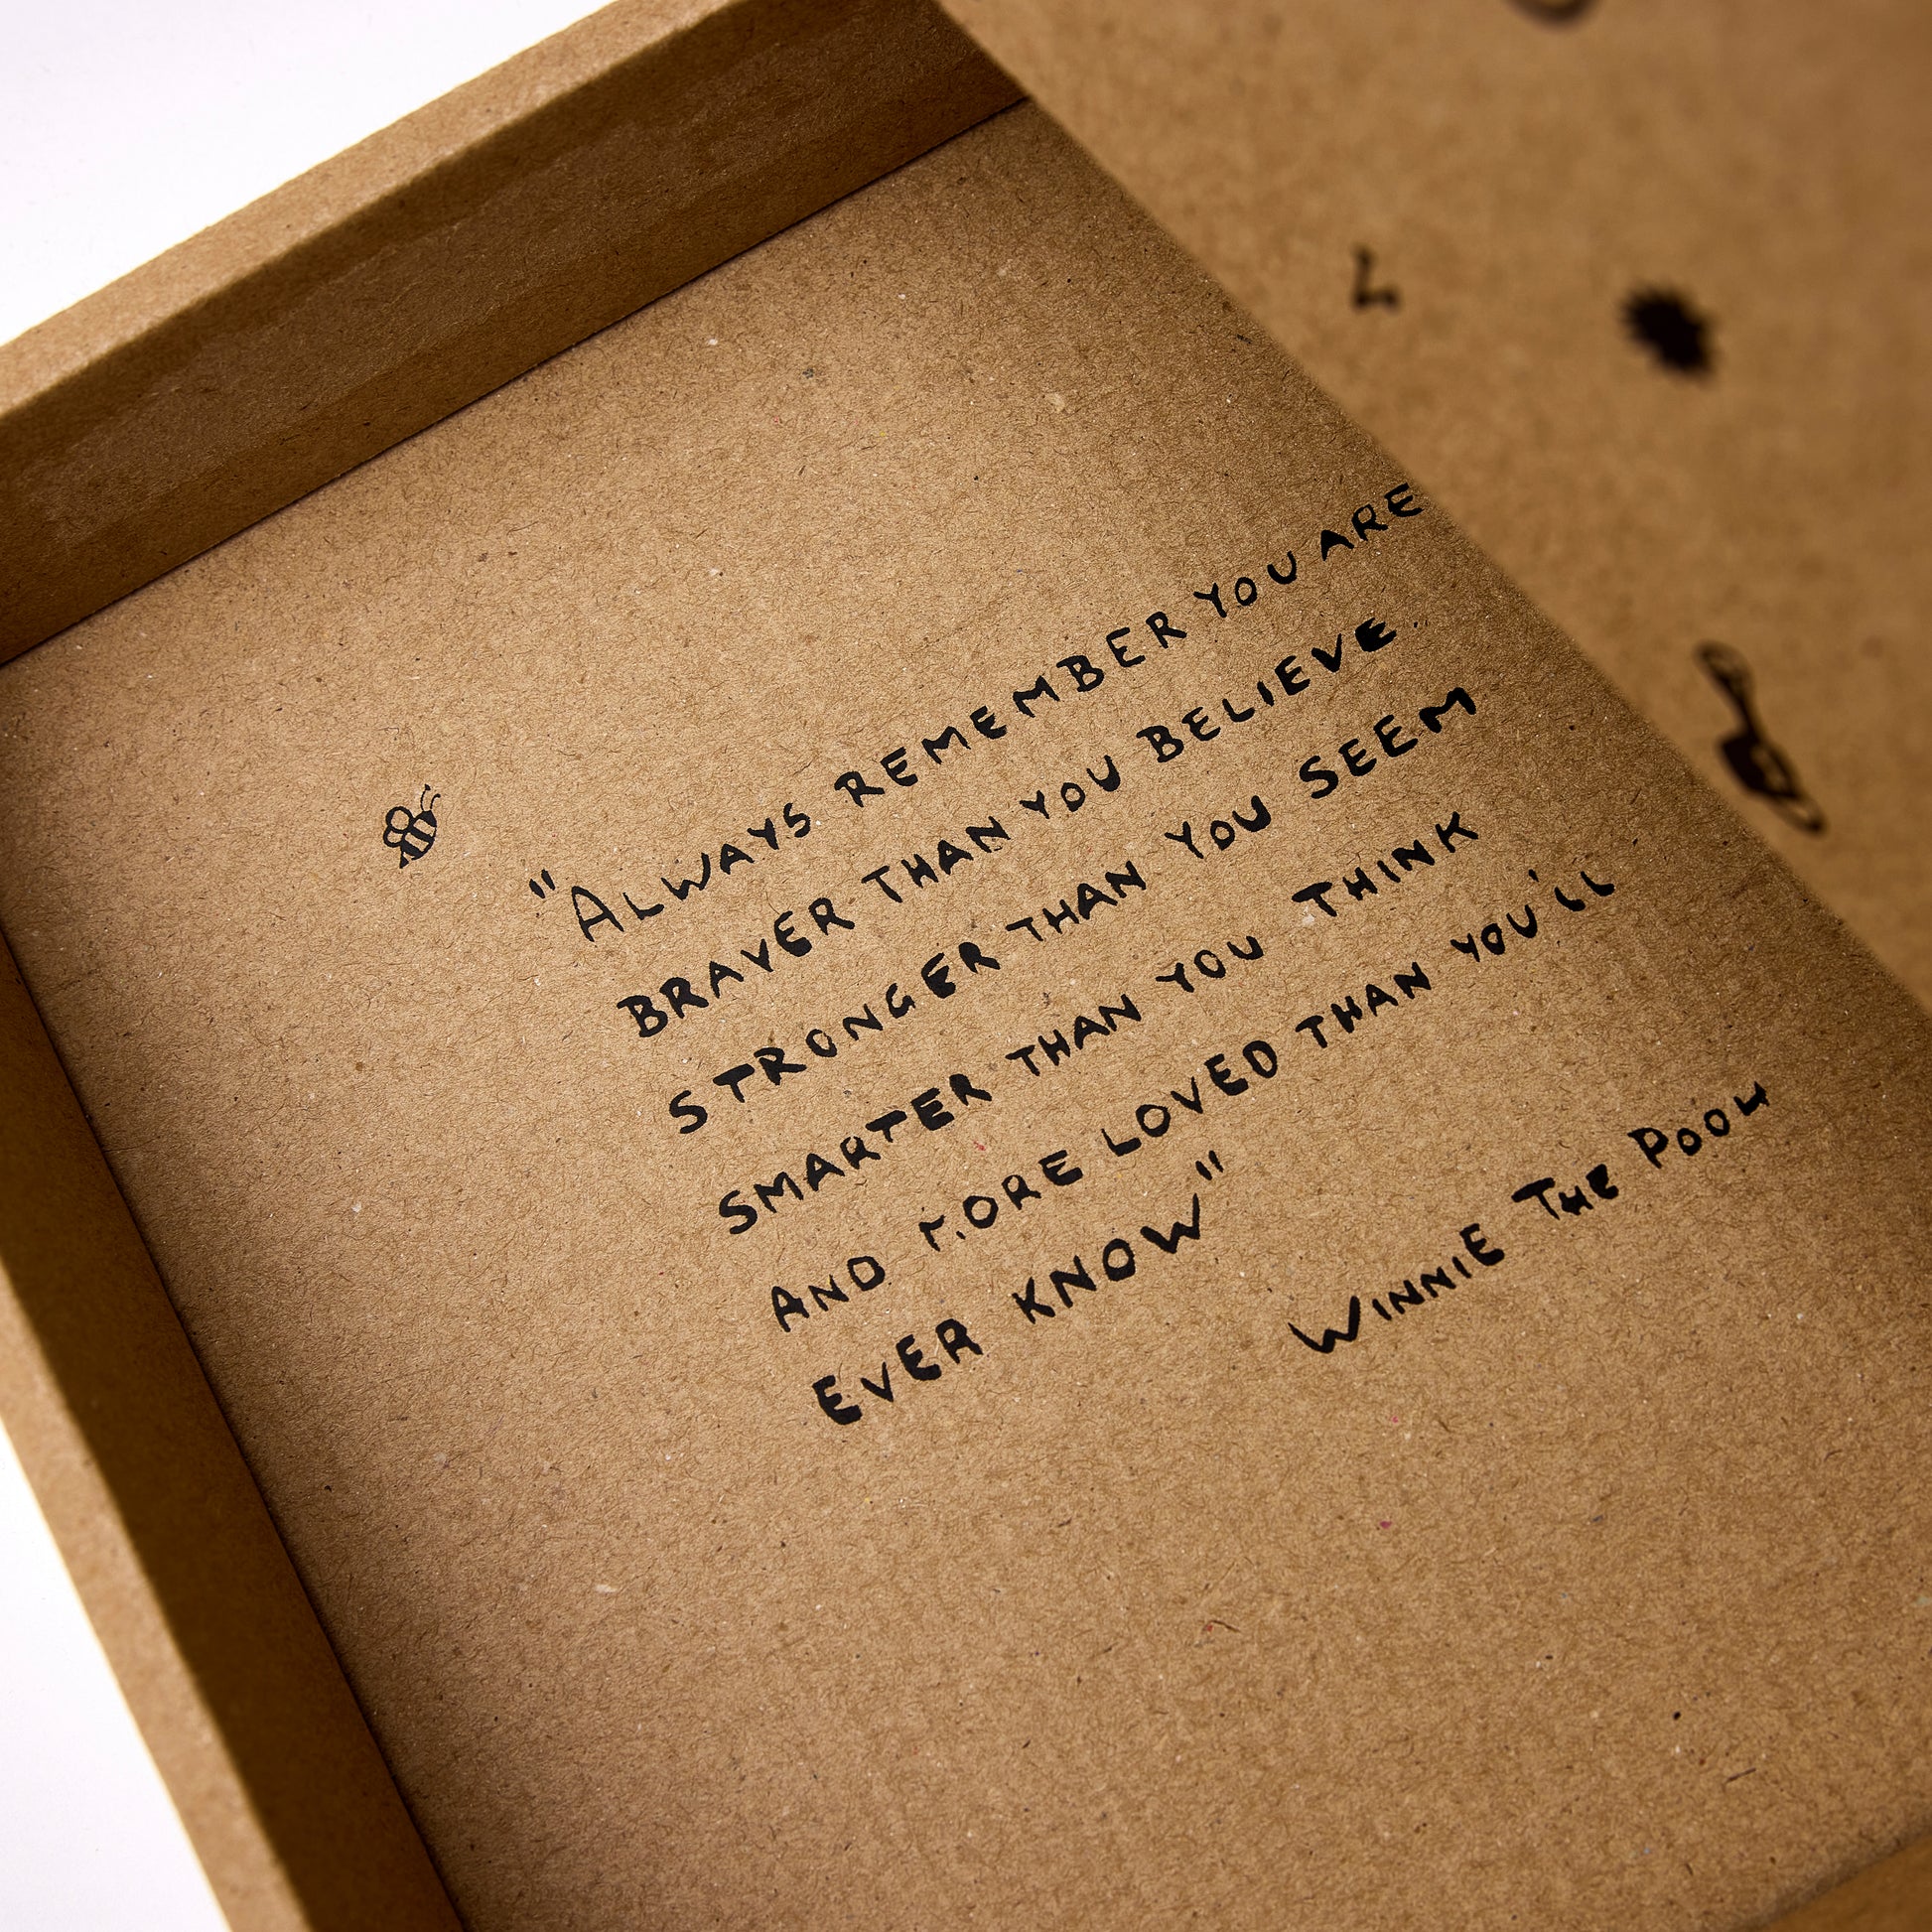 "ALWAYS REMEMBER YOU ARE
BRAVER THAN YOU BELIEVE
STRONGER THAN YOU SEEM
SMARTER THAN YOU THINK
AND MORE LOVED THAN YOU'LL
EVER KNOW"
WINNIE THE POOH